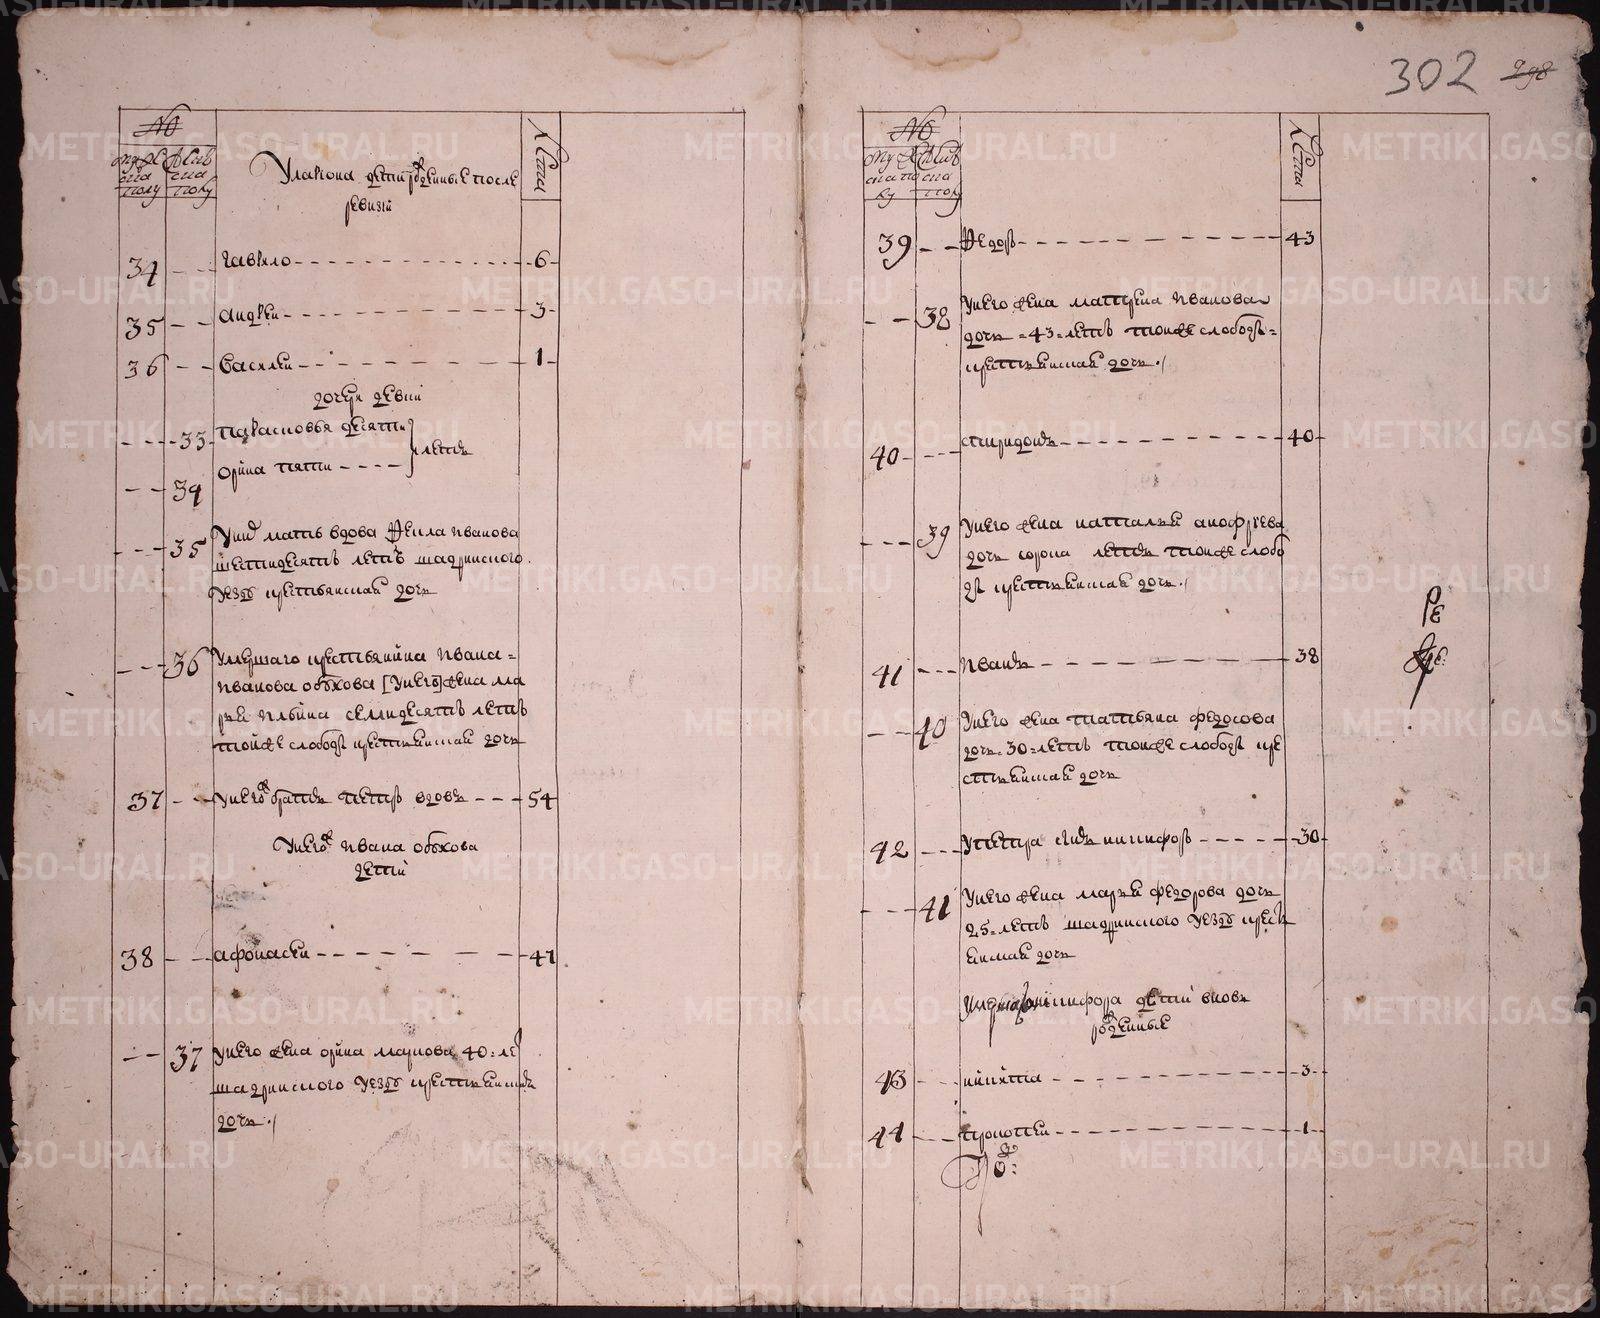 302 298
№
мужеска полу
женска полу
лета
У лариона дети рожденные после
ревизии
34 - - гаврило - - - 6
35 - - андреи - - - 3
36 - - василеи - - - 1
дочери девки
- - 33 парасковья десяти
летъ
- - 34 орина пяти - - -
- - 35 У них мать вдова Фекла иванова
шестидесятъ летъ шадринского
уезду крестьянская дочь
- - 36 Умершаго крестьянина ивана
иванова обухова [у него] жена ма
рья ильина семидесятъ летъ
тойже слободы крестьянская дочь
37 - - у него ж братъ петръ вдовъ - - - 54
У него ж ивана обухова
дети
38 - - афонасеи - - - 47
- - 37 у него жена орина маркова 40 ле
шадринского уезду крестьянская
дочь
№
мужеска полу
женска полу
лета
39 - - Федоръ - - - 43
- - 38 У него жена матрена иванова
дочь 43 летъ тоиже слободы
крестьянская дочь
40 - - спиридонъ - - - 40
- - 39 У него жена наталья анофриева
дочь сорока летъ тоиже слобо
ды крестьянская дочь
41 - - иванъ - - - 38
- - 40 У него жена татьяна федосова
дочь 30 летъ тоиже слободы кре
стьянская дочь
42 - - У петра сынъ никифоръ - - - 30
- - 41 У него жена марья федорова дочь
25 летъ шадринского уезду кресть
янская дочь
никифора дети вновь
рожденные
43 - - никита - - - 3
44 - - прокопеи - - - 1